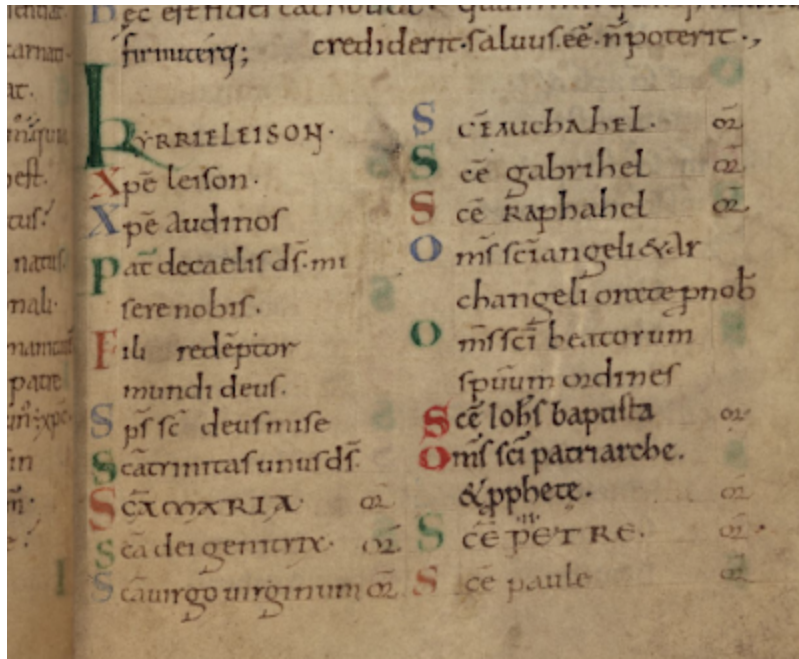 firmiterq; crediderit·saluus·eē·n̄ poterit·,
KYRRIELEISON·
Xpē leison·
Xpē audinos
Pat̄ decaelis d̄s·mi
serenobis·
Fili redēptor
mundi deus·
Sp̄s sc̄ deus mise
Sc̄atrinitas unus d̄s·
SC̄A MARIA· or̄
Sc̄a dei genitrix· or̄
Sc̄a uirgo uirginum or̄
SC̄E MICHAHEL· or̄
Sc̄e gabrihel or̄
Sc̄e RAphahel or̄
Om̄s sc̄i angeli & ar
changeli orate p nob̄
Om̄s sc̄i beatorum
sp̄uum ordines
Sc̄e Ioh̄s baptista or̄
Om̄s sc̄i patriarche·
& pphete· or̄
SC̄E PETRE· or̄·
Sc̄e paule or̄